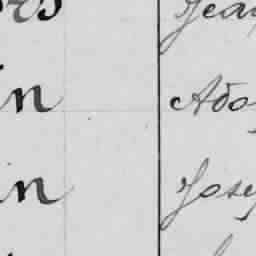 ors Jea
in Ado
in Jose